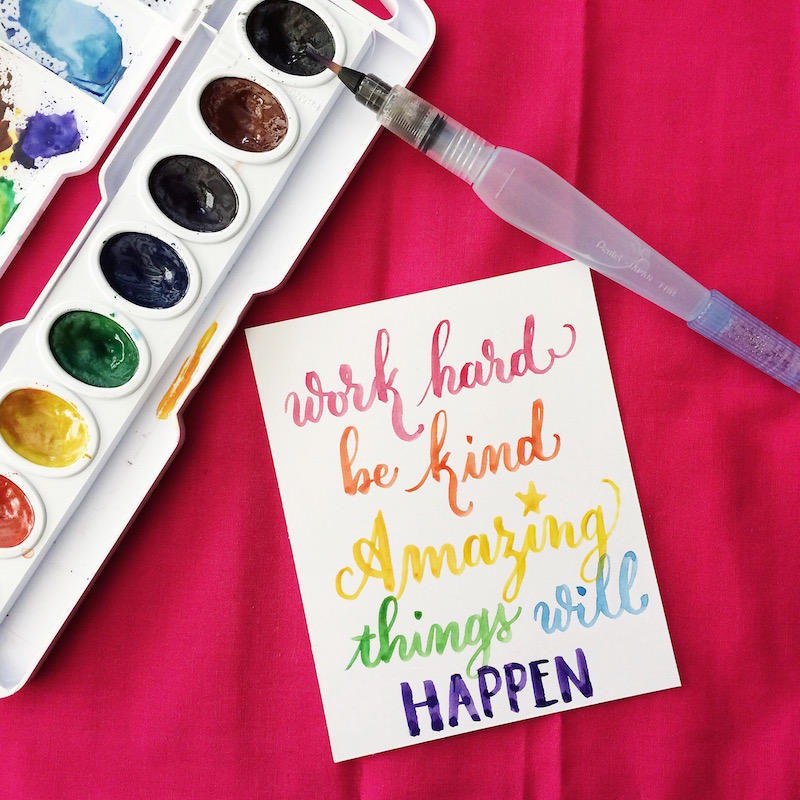 work hard
be kind
Amazing
things will
HAPPEN
Pentel JAPAN